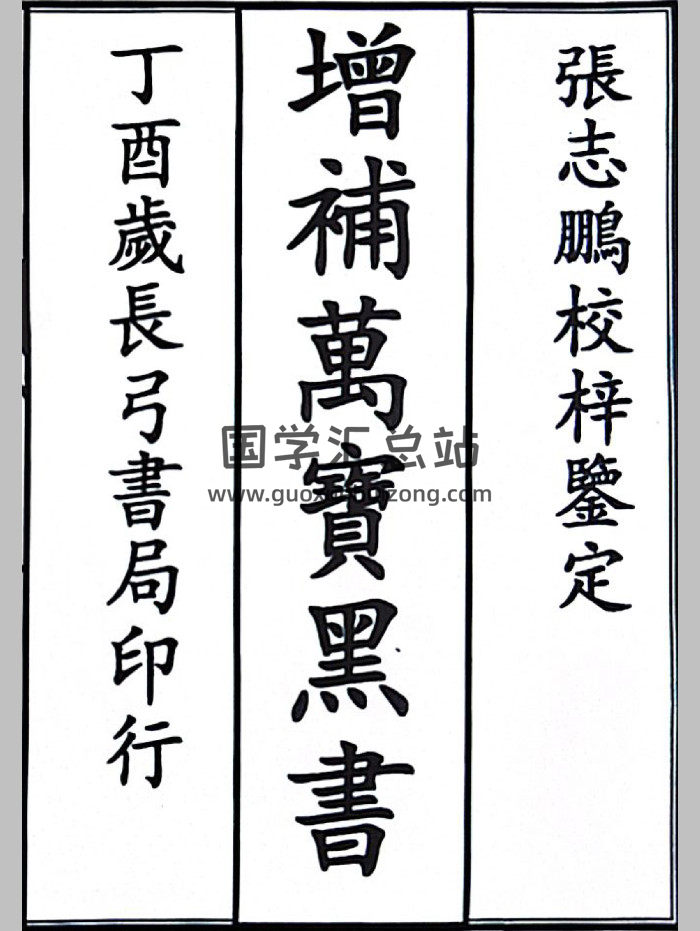 張志鵬校梓鑒定
增補萬寶黑書
丁酉歲長弓書局印行
国学汇总站